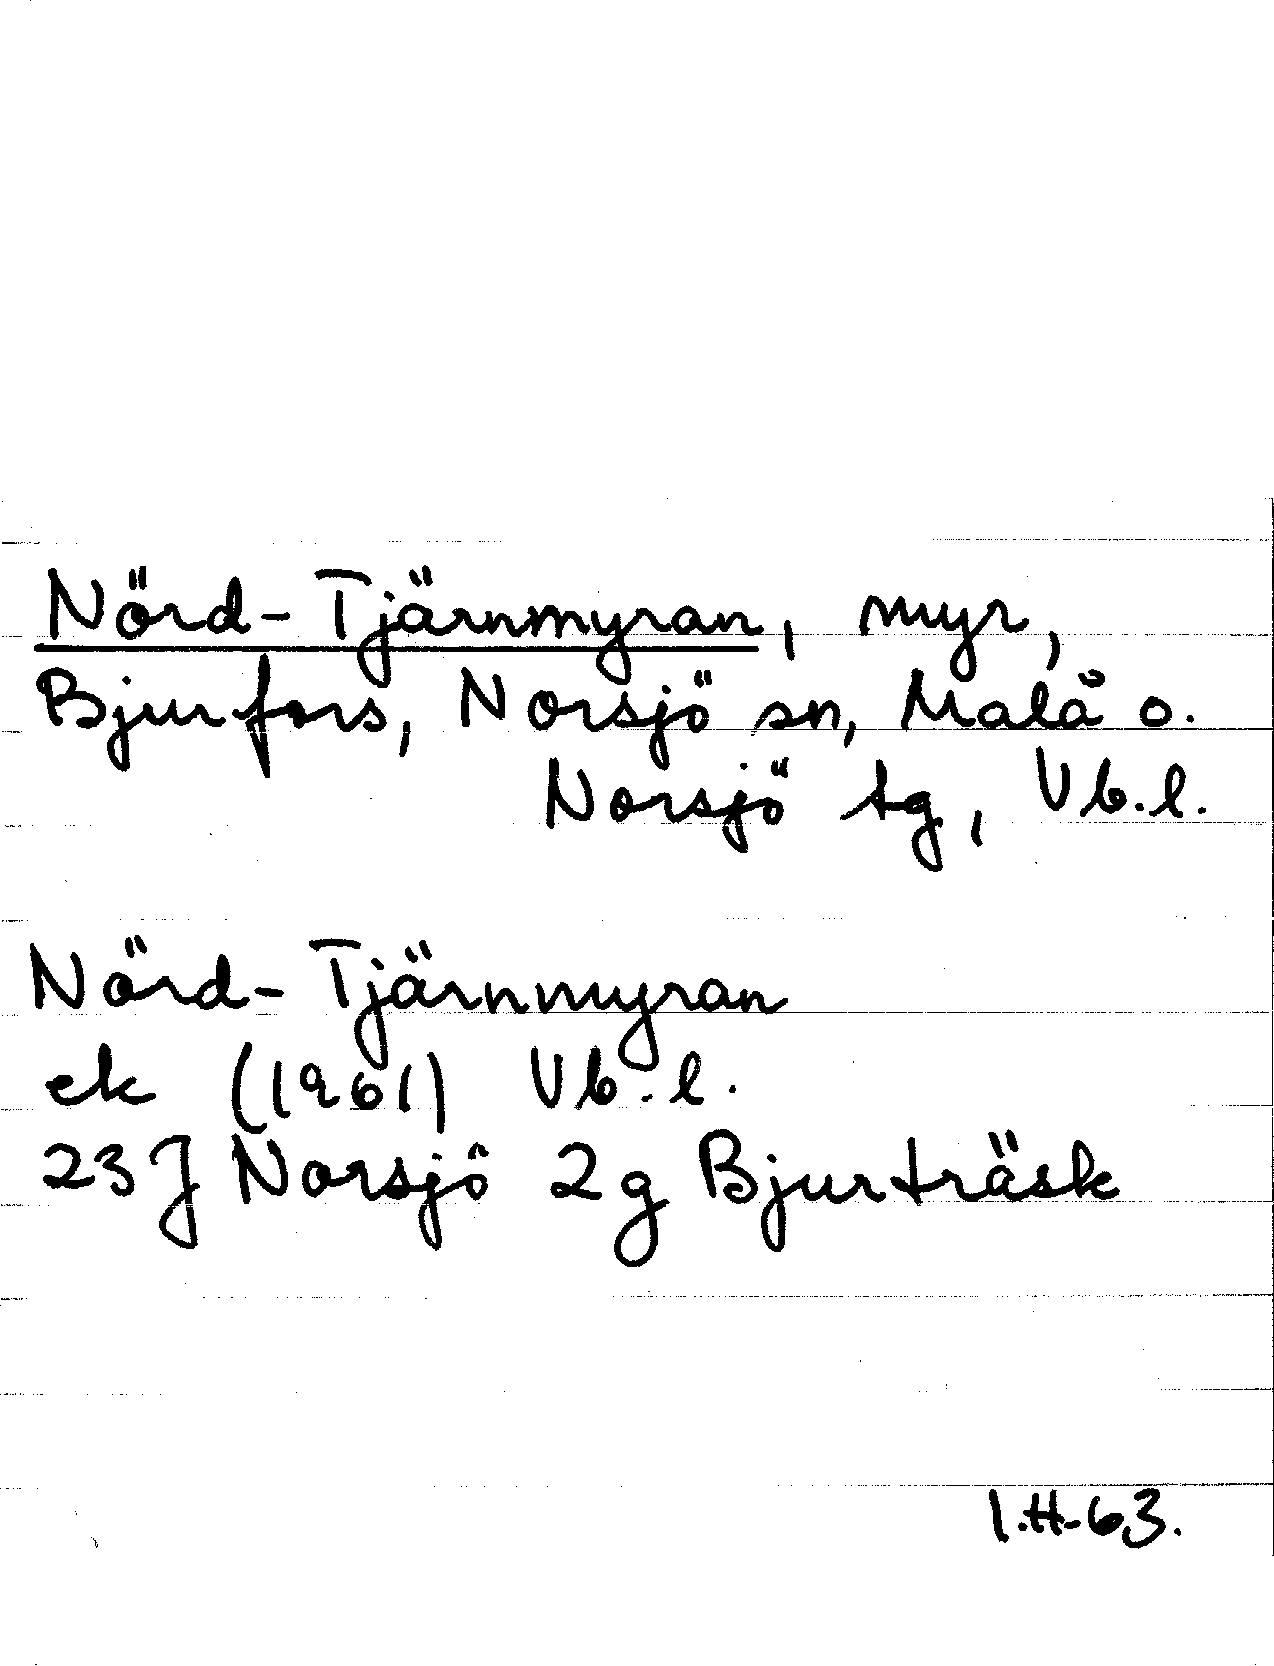 Nörd-Tjärnmyran, myr,
Bjurfors, Norsjö sn, Malå o.
Norsjö tg, Vb.l.
Nörd-Tjärnmyran
ek (1961) Vb.l.
23J Norsjö 2g Bjurträsk
I.H-63.